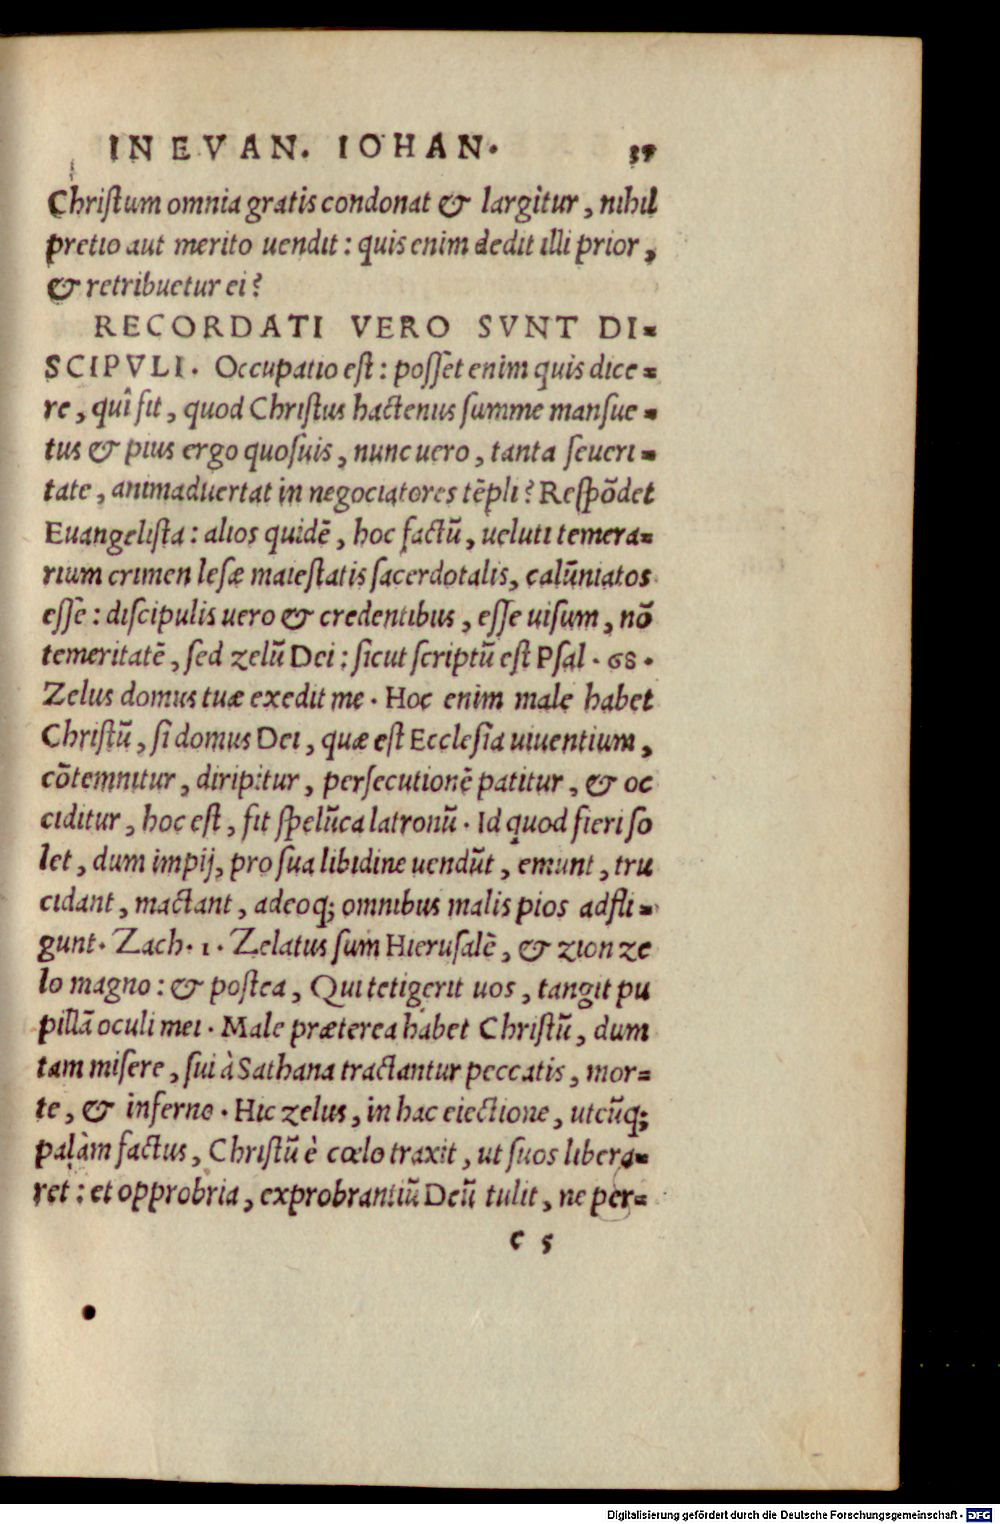 IN EVAN. IOHAN. 37
Christum omnia gratis condonat & largitur, nihil
pretio aut merito uendit: quis enim dedit illi prior,
& retribuetur ei?
RECORDATI VERO SVNT DI-
SCIPVLI. Occupatio est: posset enim quis dice-
re, quî fit, quod Christus hactenus summe mansue-
tus & pius ergo quosuis, nunc uero, tanta seueri-
tate, animaduertat in negociatores tēpli? Respōdet
Euangelista: alios quidē, hoc factū, ueluti temera-
rium crimen lesæ maiestatis sacerdotalis, calūniatos
esse: discipulis uero & credentibus, esse uisum, nō
temeritatē, sed zelū Dei: sicut scriptū est Psal. 68.
Zelus domus tuæ exedit me. Hoc enim male habet
Christū, si domus Dei, quæ est Ecclesia uiuentium,
cōtemnitur, diripitur, persecutionē patitur, & oc
ciditur, hoc est, fit spelūca latronū. Id quod fieri so
let, dum impij, pro sua libidine uendūt, emunt, tru
cidant, mactant, adeoq; omnibus malis pios adfli-
gunt. Zach. 1. Zelatus sum Hierusalē, & zion ze
lo magno: & postea, Qui tetigerit uos, tangit pu
pillā oculi mei. Male præterea habet Christū, dum
tam misere, sui à Sathana tractantur peccatis, mor-
te, & inferno. Hic zelus, in hac eiectione, utcūq;
palàm factus, Christū è cœlo traxit, ut suos libera-
ret: et opprobria, exprobrantiū Deū tulit, ne per-
c 5
Digitalisierung gefördert durch die Deutsche Forschungsgemeinschaft - DFG